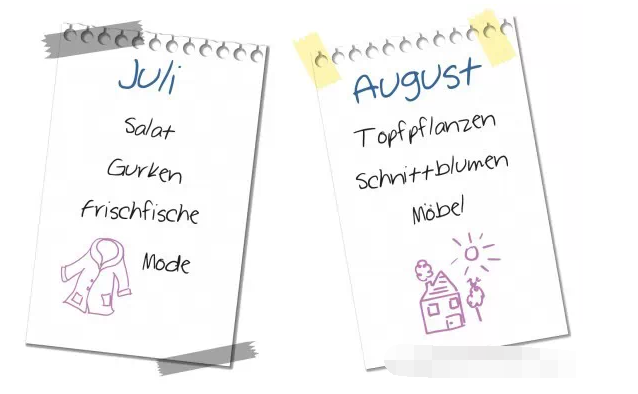 Juli
Salat
Gurken
Frischfische
Mode
August
Topfpflanzen
Schnittblumen
Möbel